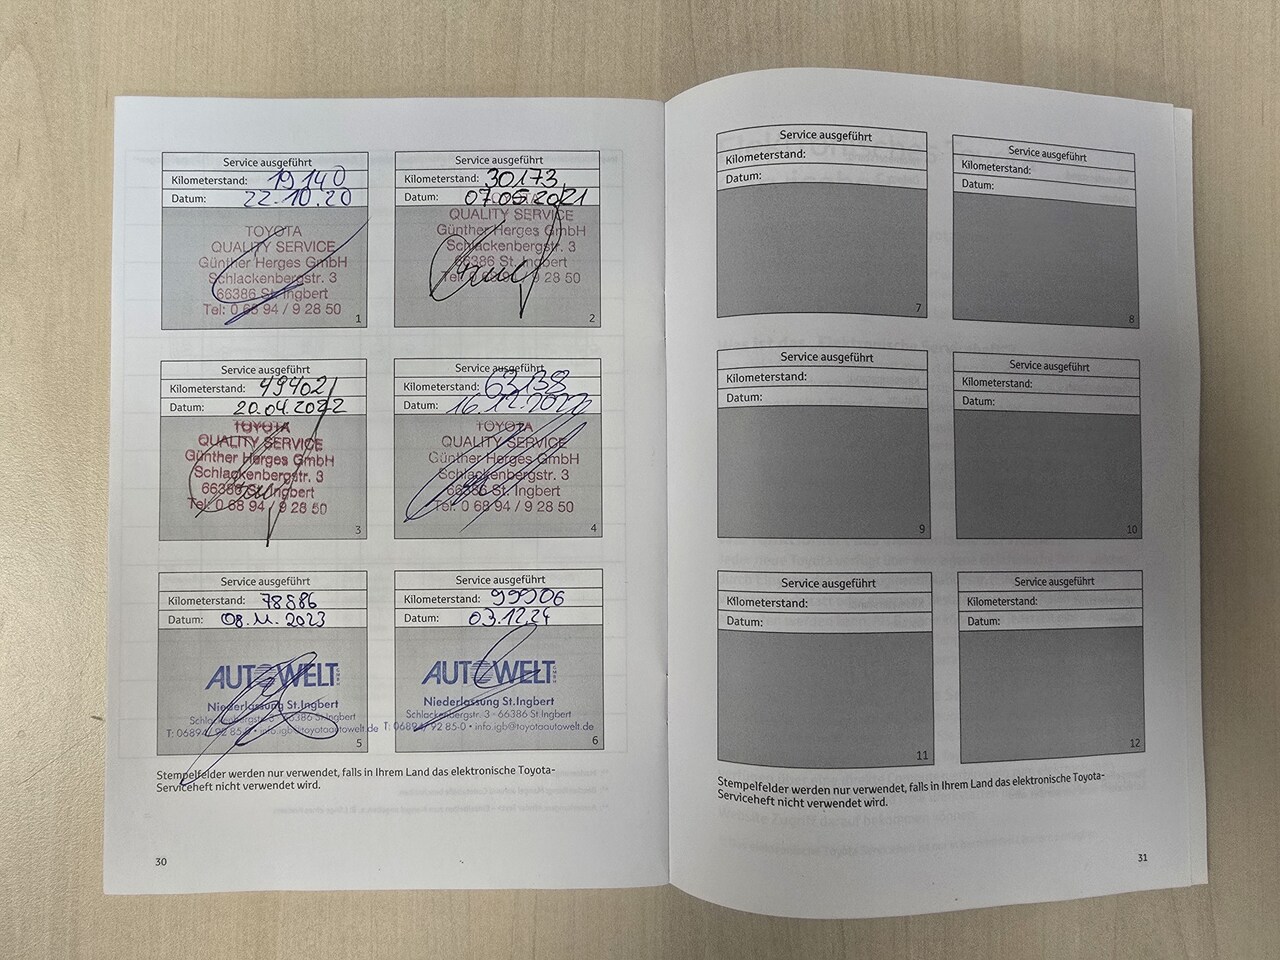 Service ausgeführt
Kilometerstand: 19140
Datum: 22.10.20
TOYOTA
QUALITY SERVICE
Günther Herges GmbH
Schlackenbergstr. 3
66386 St. Ingbert
Tel: 0 68 94 / 9 28 50
1
Service ausgeführt
Kilometerstand: 30173
Datum: 07.05.2021
QUALITY SERVICE
Günther Herges GmbH
Schlackenbergstr. 3
66386 St. Ingbert
Tel: 0 68 94 / 9 28 50
2
Service ausgeführt
Kilometerstand: 49402
Datum: 20.04.2022
TOYOTA
QUALITY SERVICE
Günther Herges GmbH
Schlackenbergstr. 3
66386 St. Ingbert
Tel: 0 68 94 / 9 28 50
3
Service ausgeführt
Kilometerstand: 63138
Datum: 16.12.2022
TOYOTA
QUALITY SERVICE
Günther Herges GmbH
Schlackenbergstr. 3
66386 St. Ingbert
Tel: 0 68 94 / 9 28 50
4
Service ausgeführt
Kilometerstand: 78586
Datum: 08.11.2023
AUTOWELT
Niederlassung St.Ingbert
Schlackenbergstr. 3 - 66386 St.Ingbert
T: 06894/ 92 85-0 • info.igb@toyotaautowelt.de
5
Service ausgeführt
Kilometerstand: 99906
Datum: 03.12.24
AUTOWELT
Niederlassung St.Ingbert
Schlackenbergstr. 3 - 66386 St.Ingbert
T: 06894/ 92 85-0 • info.igb@toyotaautowelt.de
6
Stempelfelder werden nur verwendet, falls in Ihrem Land das elektronische Toyota-
Serviceheft nicht verwendet wird.
30
Service ausgeführt
Kilometerstand:
Datum:
7
Service ausgeführt
Kilometerstand:
Datum:
8
Service ausgeführt
Kilometerstand:
Datum:
9
Service ausgeführt
Kilometerstand:
Datum:
10
Service ausgeführt
Kilometerstand:
Datum:
11
Service ausgeführt
Kilometerstand:
Datum:
12
Stempelfelder werden nur verwendet, falls in Ihrem Land das elektronische Toyota-
Serviceheft nicht verwendet wird.
31